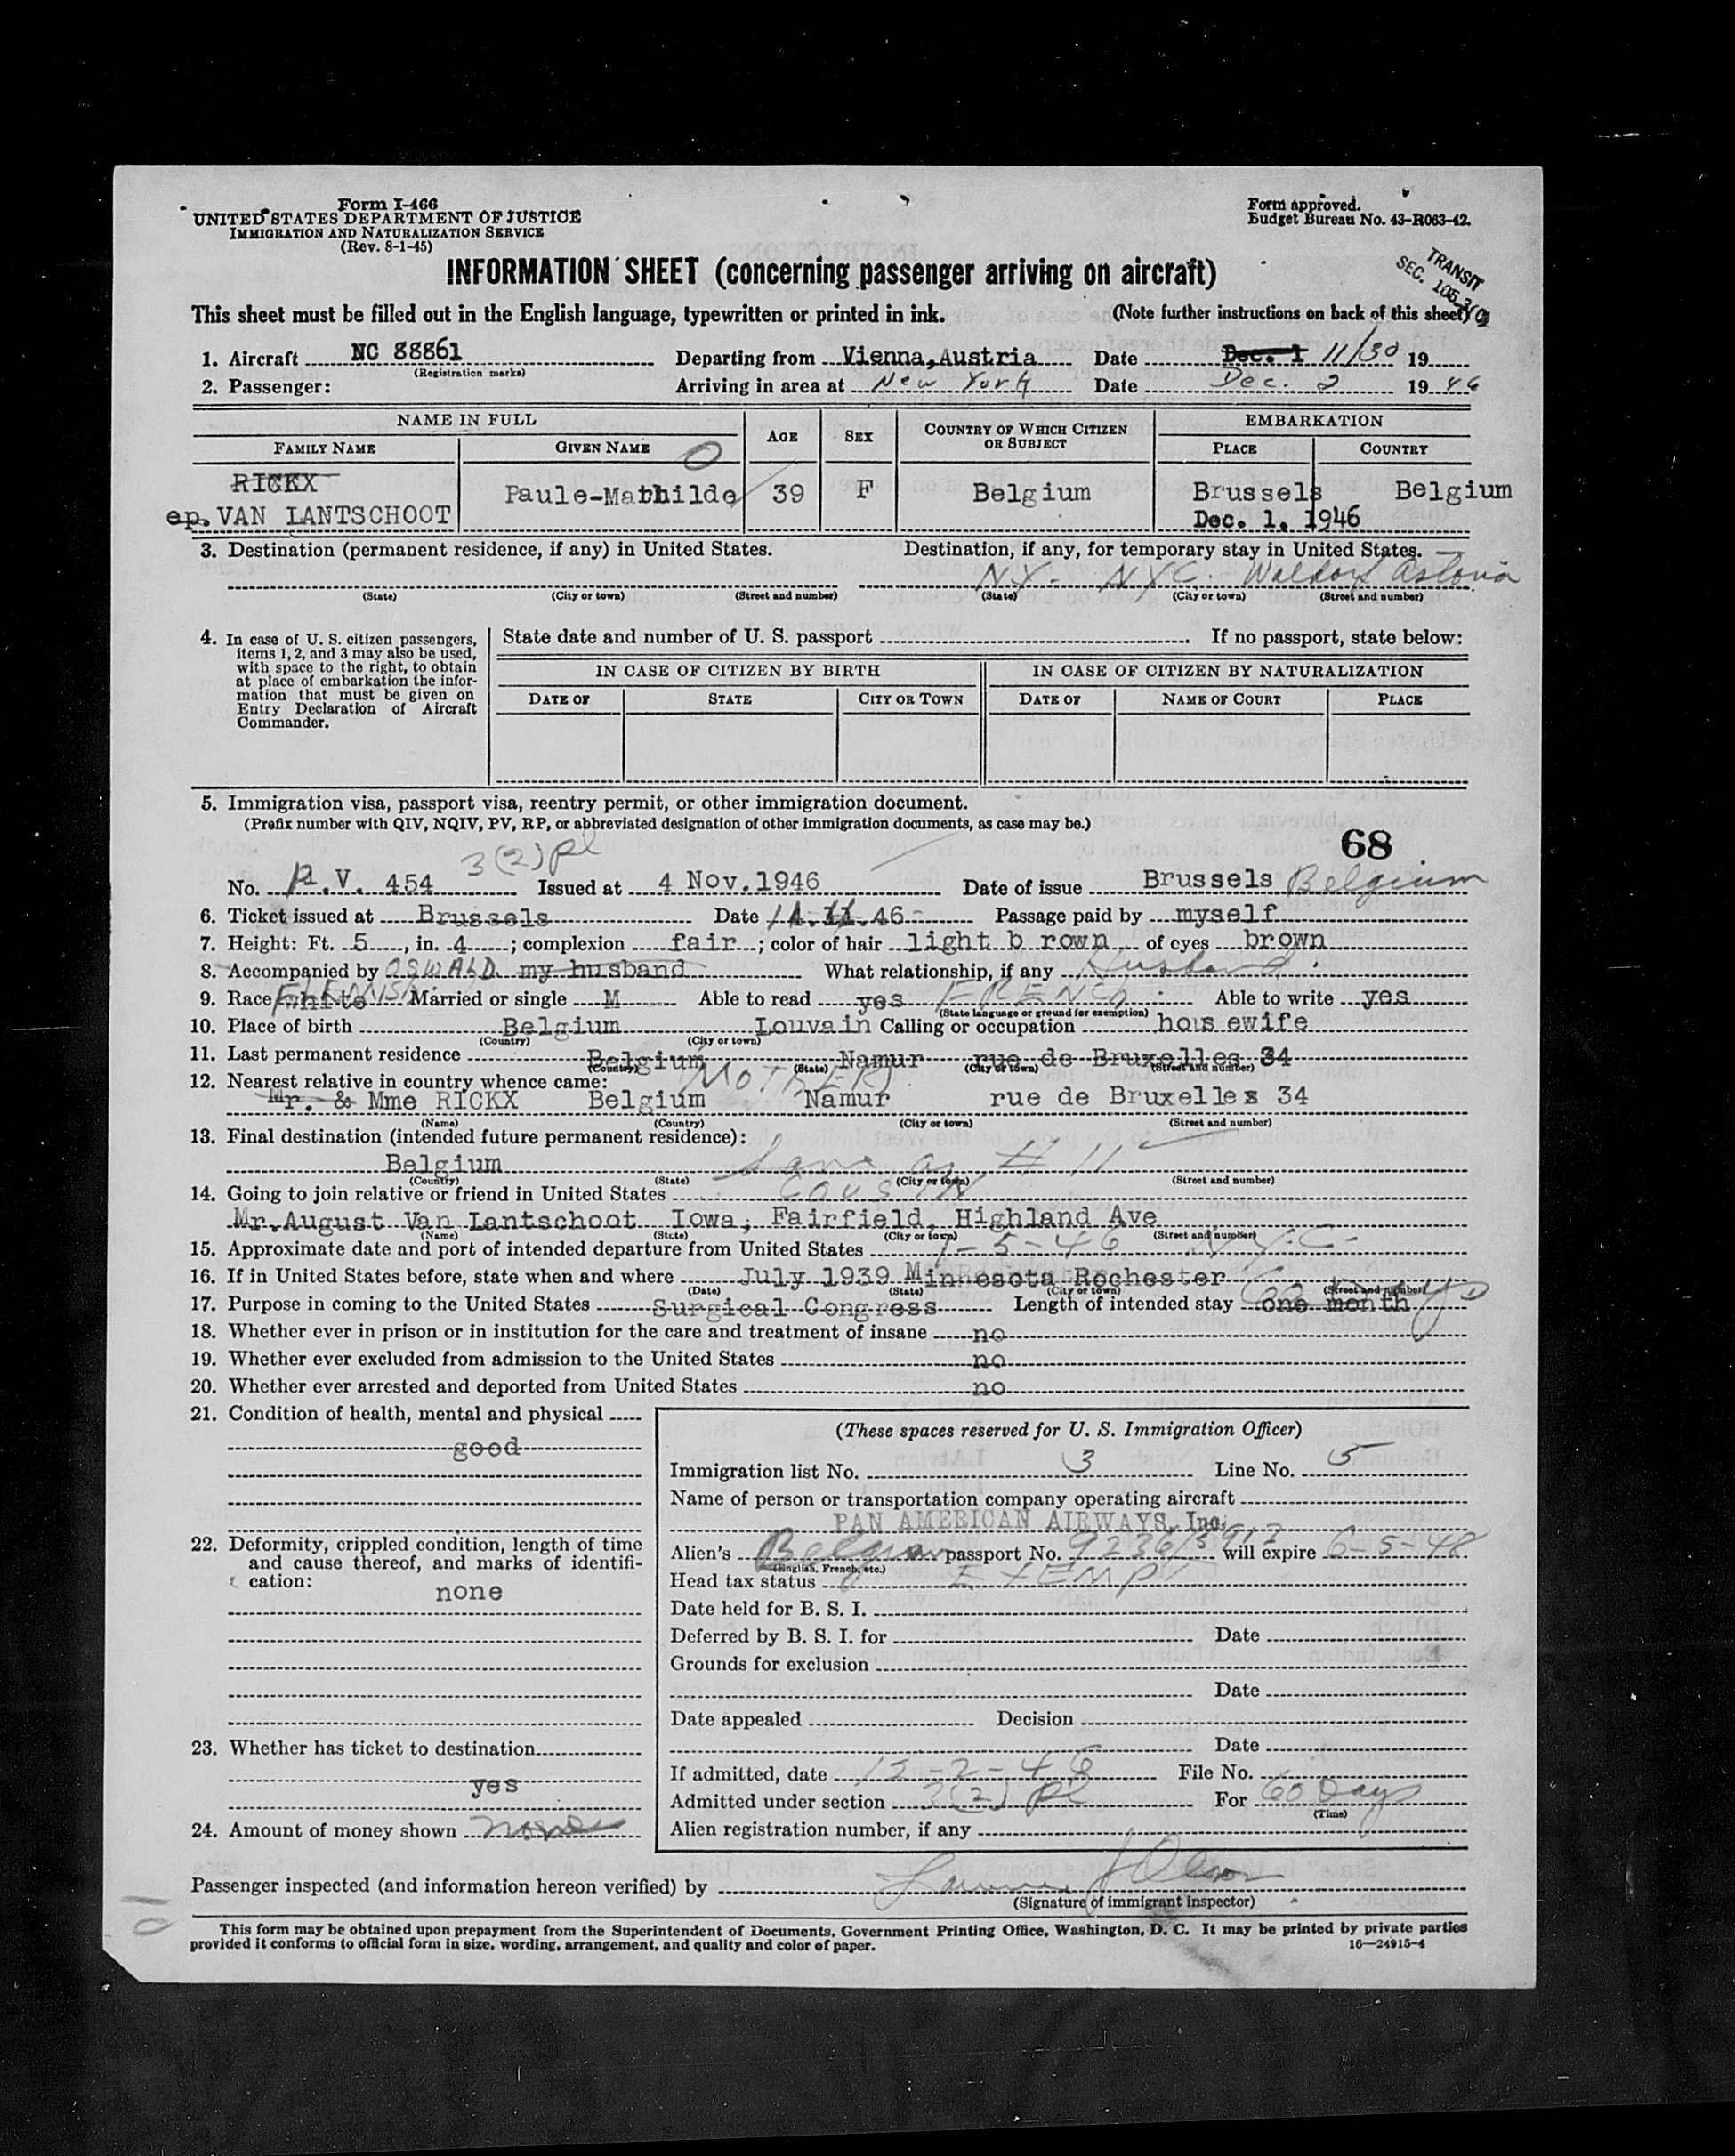 Form I-466
UNITED STATES DEPARTMENT OF JUSTICE
IMMIGRATION AND NATURALIZATION SERVICE
(Rev. 8-1-45)
Form approved.
Budget Bureau No. 43-R063-42.
TRANSIT
SEC. 105.3(
INFORMATION SHEET (concerning passenger arriving on aircraft)
This sheet must be filled out in the English language, typewritten or printed in ink. (Note further instructions on back of this sheet)
1. Aircraft NC 88861 Departing from Vienna,Austria Date Dec. 1 11/30 19
(Registration marks)
2. Passenger: Arriving in area at New York Date Dec. 2 19 46
NAME IN FULL AGE SEX COUNTRY OF WHICH CITIZEN OR SUBJECT EMBARKATION
FAMILY NAME GIVEN NAME PLACE COUNTRY
RICKX
ep. VAN LANTSCHOOT Paule-Mathilde 39 F Belgium Brussels Belgium
Dec. 1, 1946
3. Destination (permanent residence, if any) in United States. Destination, if any, for temporary stay in United States.
N.Y. NYC. Waldorf Astoria
(State) (City or town) (Street and number) (State) (City or town) (Street and number)
4. In case of U. S. citizen passengers, items 1, 2, and 3 may also be used, with space to the right, to obtain at place of embarkation the information that must be given on Entry Declaration of Aircraft Commander.
State date and number of U. S. passport If no passport, state below:
IN CASE OF CITIZEN BY BIRTH IN CASE OF CITIZEN BY NATURALIZATION
DATE OF STATE CITY OR TOWN DATE OF NAME OF COURT PLACE
5. Immigration visa, passport visa, reentry permit, or other immigration document.
(Prefix number with QIV, NQIV, PV, RP, or abbreviated designation of other immigration documents, as case may be.)
68
3(2) pl
No. P.V. 454 Issued at 4 Nov.1946 Date of issue Brussels Belgium
6. Ticket issued at Brussels Date 11.46 Passage paid by myself
7. Height: Ft. 5, in. 4; complexion fair; color of hair light b rown of eyes brown
8. Accompanied by OSWALD my husband What relationship, if any Husband
9. Race white FLEMISH Married or single M Able to read yes FRENCH Able to write yes
(State language or ground for exemption)
10. Place of birth Belgium Louvain Calling or occupation hous ewife
(Country) (City or town)
11. Last permanent residence Belgium Namur rue de Bruxelles 34
(Country) (State) (City or town) (Street and number)
12. Nearest relative in country whence came: MOTHER
Mr. & Mme RICKX Belgium Namur rue de Bruxelles 34
(Name) (Country) (City or town) (Street and number)
13. Final destination (intended future permanent residence):
Belgium Same as # 11
(Country) (State) (City or town) (Street and number)
14. Going to join relative or friend in United States COUSIN
Mr.August Van Lantschoot Iowa, Fairfield, Highland Ave
(Name) (State) (City or town) (Street and number)
15. Approximate date and port of intended departure from United States 1-5-46 N.Y.C.
16. If in United States before, state when and where July 1939 Minnesota Rochester
(Date) (State) (City or town) (Street and number)
17. Purpose in coming to the United States Surgical Congress Length of intended stay one month 60 D
18. Whether ever in prison or in institution for the care and treatment of insane no
19. Whether ever excluded from admission to the United States no
20. Whether ever arrested and deported from United States no
21. Condition of health, mental and physical
good
22. Deformity, crippled condition, length of time and cause thereof, and marks of identification:
none
23. Whether has ticket to destination
yes
24. Amount of money shown none
(These spaces reserved for U. S. Immigration Officer)
Immigration list No. 3 Line No. 5
Name of person or transportation company operating aircraft
PAN AMERICAN AIRWAYS, Inc.
Alien's Belgian passport No. 9236/3913 will expire 6-5-48
(English, French, etc.)
Head tax status EXEMPT
Date held for B. S. I.
Deferred by B. S. I. for Date
Grounds for exclusion
Date
Date appealed Decision
Date
If admitted, date 12-2-46 File No.
Admitted under section 3(2) pl For 60 Days
(Time)
Alien registration number, if any
Passenger inspected (and information hereon verified) by
(Signature of immigrant inspector)
This form may be obtained upon prepayment from the Superintendent of Documents, Government Printing Office, Washington, D. C. It may be printed by private parties
provided it conforms to official form in size, wording, arrangement, and quality and color of paper. 16—24915-4